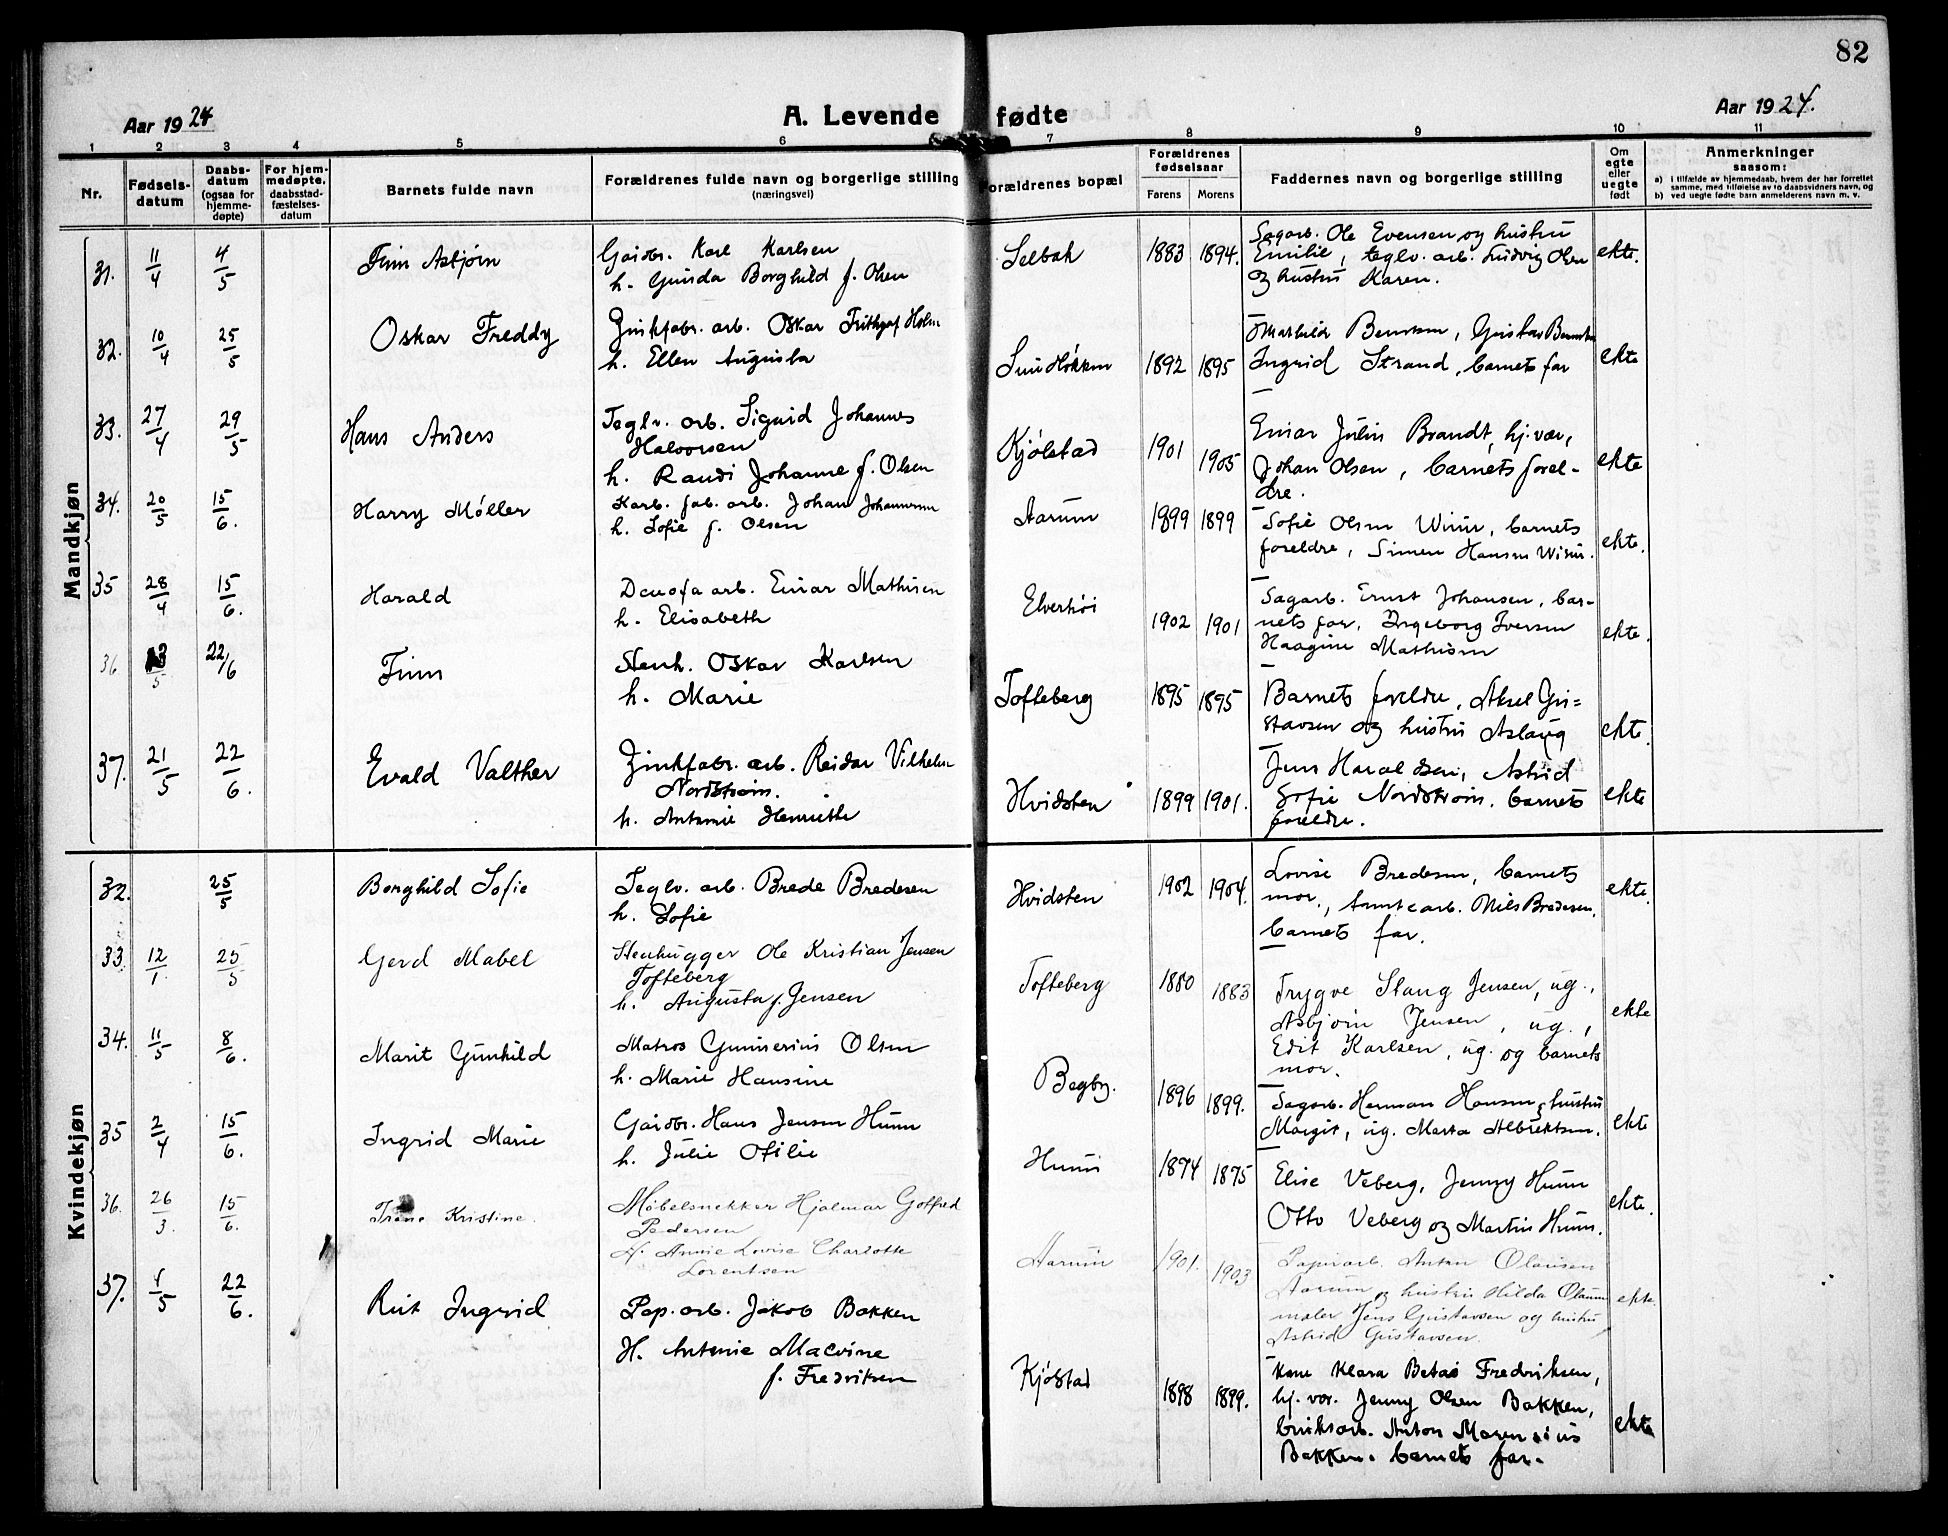 82
Aar 1924
A. Levende fødte
Aar 1924.
1 2 3 4 5 6 7 8 9 10 11
Nr.
Fødsels-
datum
Daabs-
datum
(ogsaa for
hjemme-
døpte)
For hjem-
medøpte,
daabsstad-
fæstelses-
datum
Barnets fulde navn
Forældrenes fulde navn og borgerlige stilling
(næringsvei)
Forældrenes bopæl
Forældrenes
fødselsaar
Farens Morens
Faddernes navn og borgerlige stilling
Om
egte
eller
uegte
født
Anmerkninger
saasom:
a) i tilfælde av hjemmedaab, hvem der har forrettet
samme, med tilføielse av to daabsvidners navn, og
b) ved uegte fødte barn anmelderens navn m. v.
Mandkjøn
31. 11/4 4/5 Finn Asbjørn
Gaardbr. Karl Karlsen
h. Gunda Borghild f. Olsen
Selbak 1883 1894.
Sagarb. Ole Evensen og hustru
Emilie, teglv. arb. Ludvig Olsen
og hustru Karen.
ekte.
32. 10/4 25/5 Oskar Freddy
Zinkfabr. arb. Oskar Frithjof Holm
h. Ellen Augusta
1892 1895
Mathilde Berntsen, Gustav Berntsen
Ingrid Strand, barnets far
ekte
33. 27/4 29/5 Hans Anders
Teglv. arb. Sigurd Johannes
Halvorsen
h. Randi Johanne f. Olsen
Kjølstad 1901 1905
Einar Julius Brandt, hj. vær,
Johan Olsen, barnets forel-
dre.
ekte
34. 20/5 15/6. Harry Møller
Karb. fab. arb. Johan Johannesen
h. Sofie f. Olsen
Aarum 1899 1899
Sofie Olsen, barnets
foreldre, Simen Hansen
ekte.
35 28/4 15/6. Harald
Denofa arb. Einar Mathisen
h. Elisabeth
Elverhøi 1902 1901
Sagarb. Ernst Johansen, bar-
nets far, Ingeborg Iversen
Haagine Mathisen
ekte.
36 13/5 22/6 Finn
Stenh. Oskar Karlsen
h. Marie
Tofteberg 1895 1895
Barnets foreldre, Aksel Gu-
stavsen og hustru Aslaug
ekte.
37. 21/5 22/6. Evald Valther
Zinkfabr. arb. Reidar Vilhelm
Nordstrøm.
h. Antonie Henriette
Hvidsten 1899 1901.
Jens Haraldsen, Astrid
Sofie Nordstrøm. barnets
foreldre.
ekte
Kvindekjøn
32. 25/5 Borghild Sofie
Teglv. arb. Brede Bredesen
h. Sofie
Hvidsten 1902 1904.
Lovise Bredesen, barnets
mor, arb. Nils Bredesen,
barnets far.
ekte.
33. 12/1. 25/5 Gerd Mabel
Stenhugger Ole Kristian Jensen
Tofteberg
h. Augusta f. Jensen
Tofteberg 1880 1883
Trygve Stang Jensen, ug.,
Asbjørn Jensen, ug.,
Edit Karlsen, ug. og barnets
mor.
ekte
34. 11/5 8/6. Marit Gunhild
Matros Gunnerius Olsen
h. Marie Hansine
Begby. 1896 1899.
Sagarb. Herman Hansen & hustru
Margit, ug. Marta Albrektsen.
ekte
35 2/4 15/6. Ingrid Marie
Gaardbr. Hans Jensen Hunn
h. Julie Otilie
Hunn 1874 1875
Elise Veberg, Jenny Hunn
Otto Veberg og Martin Hunn.
ekte.
36. 26/3. 15/6. Irene Kristine.
Møbelsnekker Hjalmar Gotfred
Pedersen
h. Annie Lovise Charlotte
Lorentsen
Aarum 1901. 1903
Papirarb. Anton Olausen
Aarum og hustru Hilda Olausen
maler Jens Gustavsen og hustru
Astrid Gustavsen.
ekte.
37. 1/5 22/6. Rut Ingrid
Pap. arb. Jakob Bakken
H. Antonie Malvine
f. Fredriksen
Kjølstad 1898 1899.
Kone Klara Betas Fredriksen,
hj. vær. Jenny Olsen Bakken,
bruksarb. Anton Marensius
Bakken. barnets far.
ekte